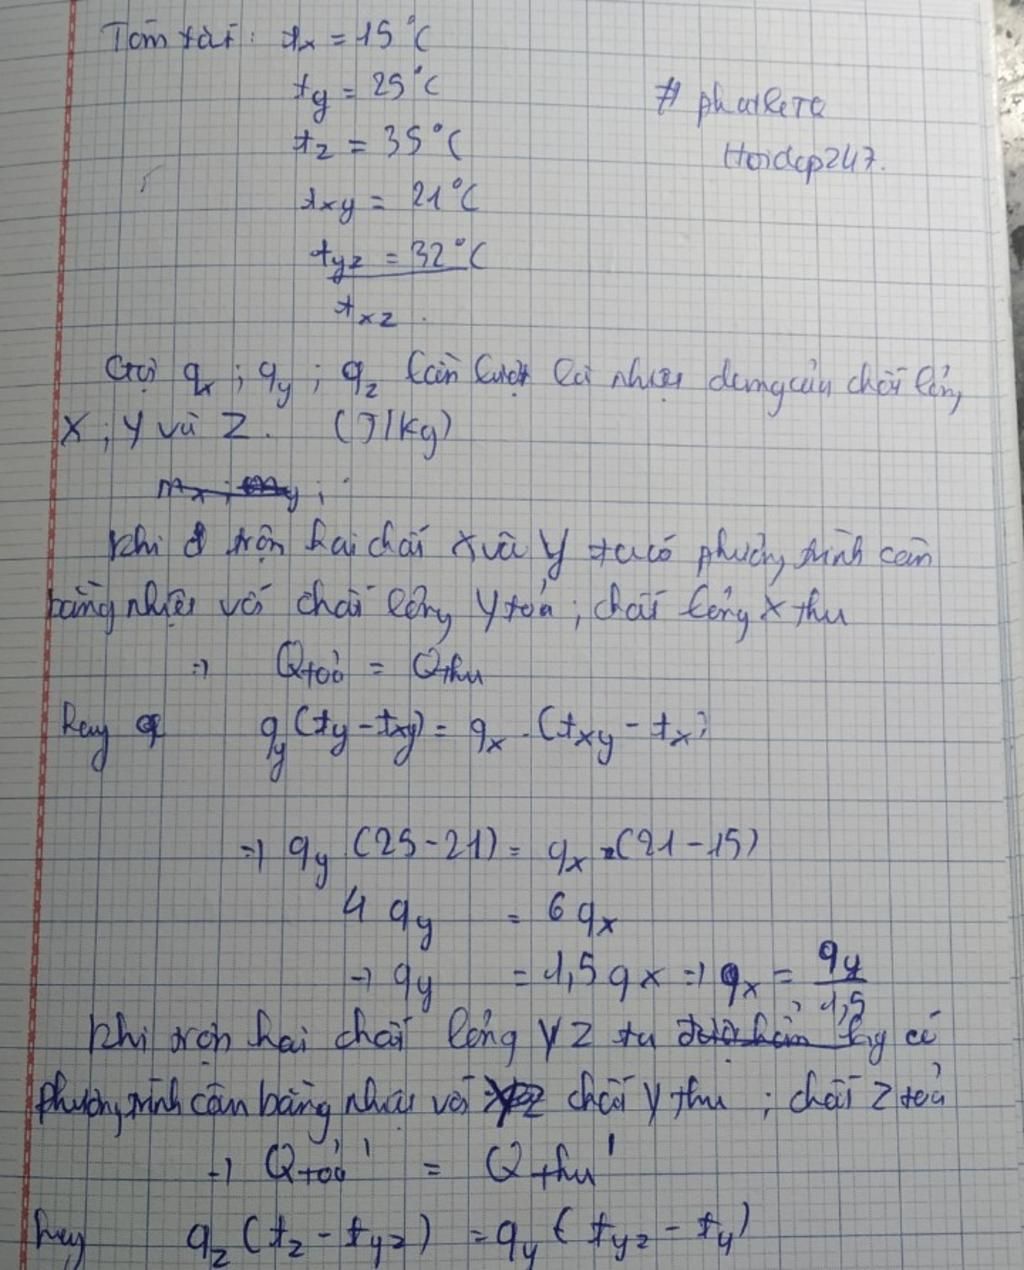 Tóm tắt: tx = 15°C
ty = 25°C
# phatRete
tz = 35°C
Hoidap247.
txy = 21°C
tyz = 32°C
txz.
Gọi qx ; qy ; qz lần lượt là nhiệt dung của chất lỏng
X ; Y và Z. (J/kg)
Khi trộn hai chất X và Y ta có phương trình cân
bằng nhiệt với chất lỏng Y toả ; chất lỏng X thu
=> Qtoả = Qthu
hay qy(ty - txy) = qx . (txy - tx)
=> qy (25 - 21) = qx . (21 - 15)
4 qy = 6 qx
=> qy = 1,5 qx => qx = qy/1,5
Khi trộn hai chất lỏng Y Z ta có
phương trình cân bằng nhiệt với chất Y thu ; chất Z toả
=> Qtoả' = Qthu'
hay qz (tz - tyz) = qy (tyz - ty)